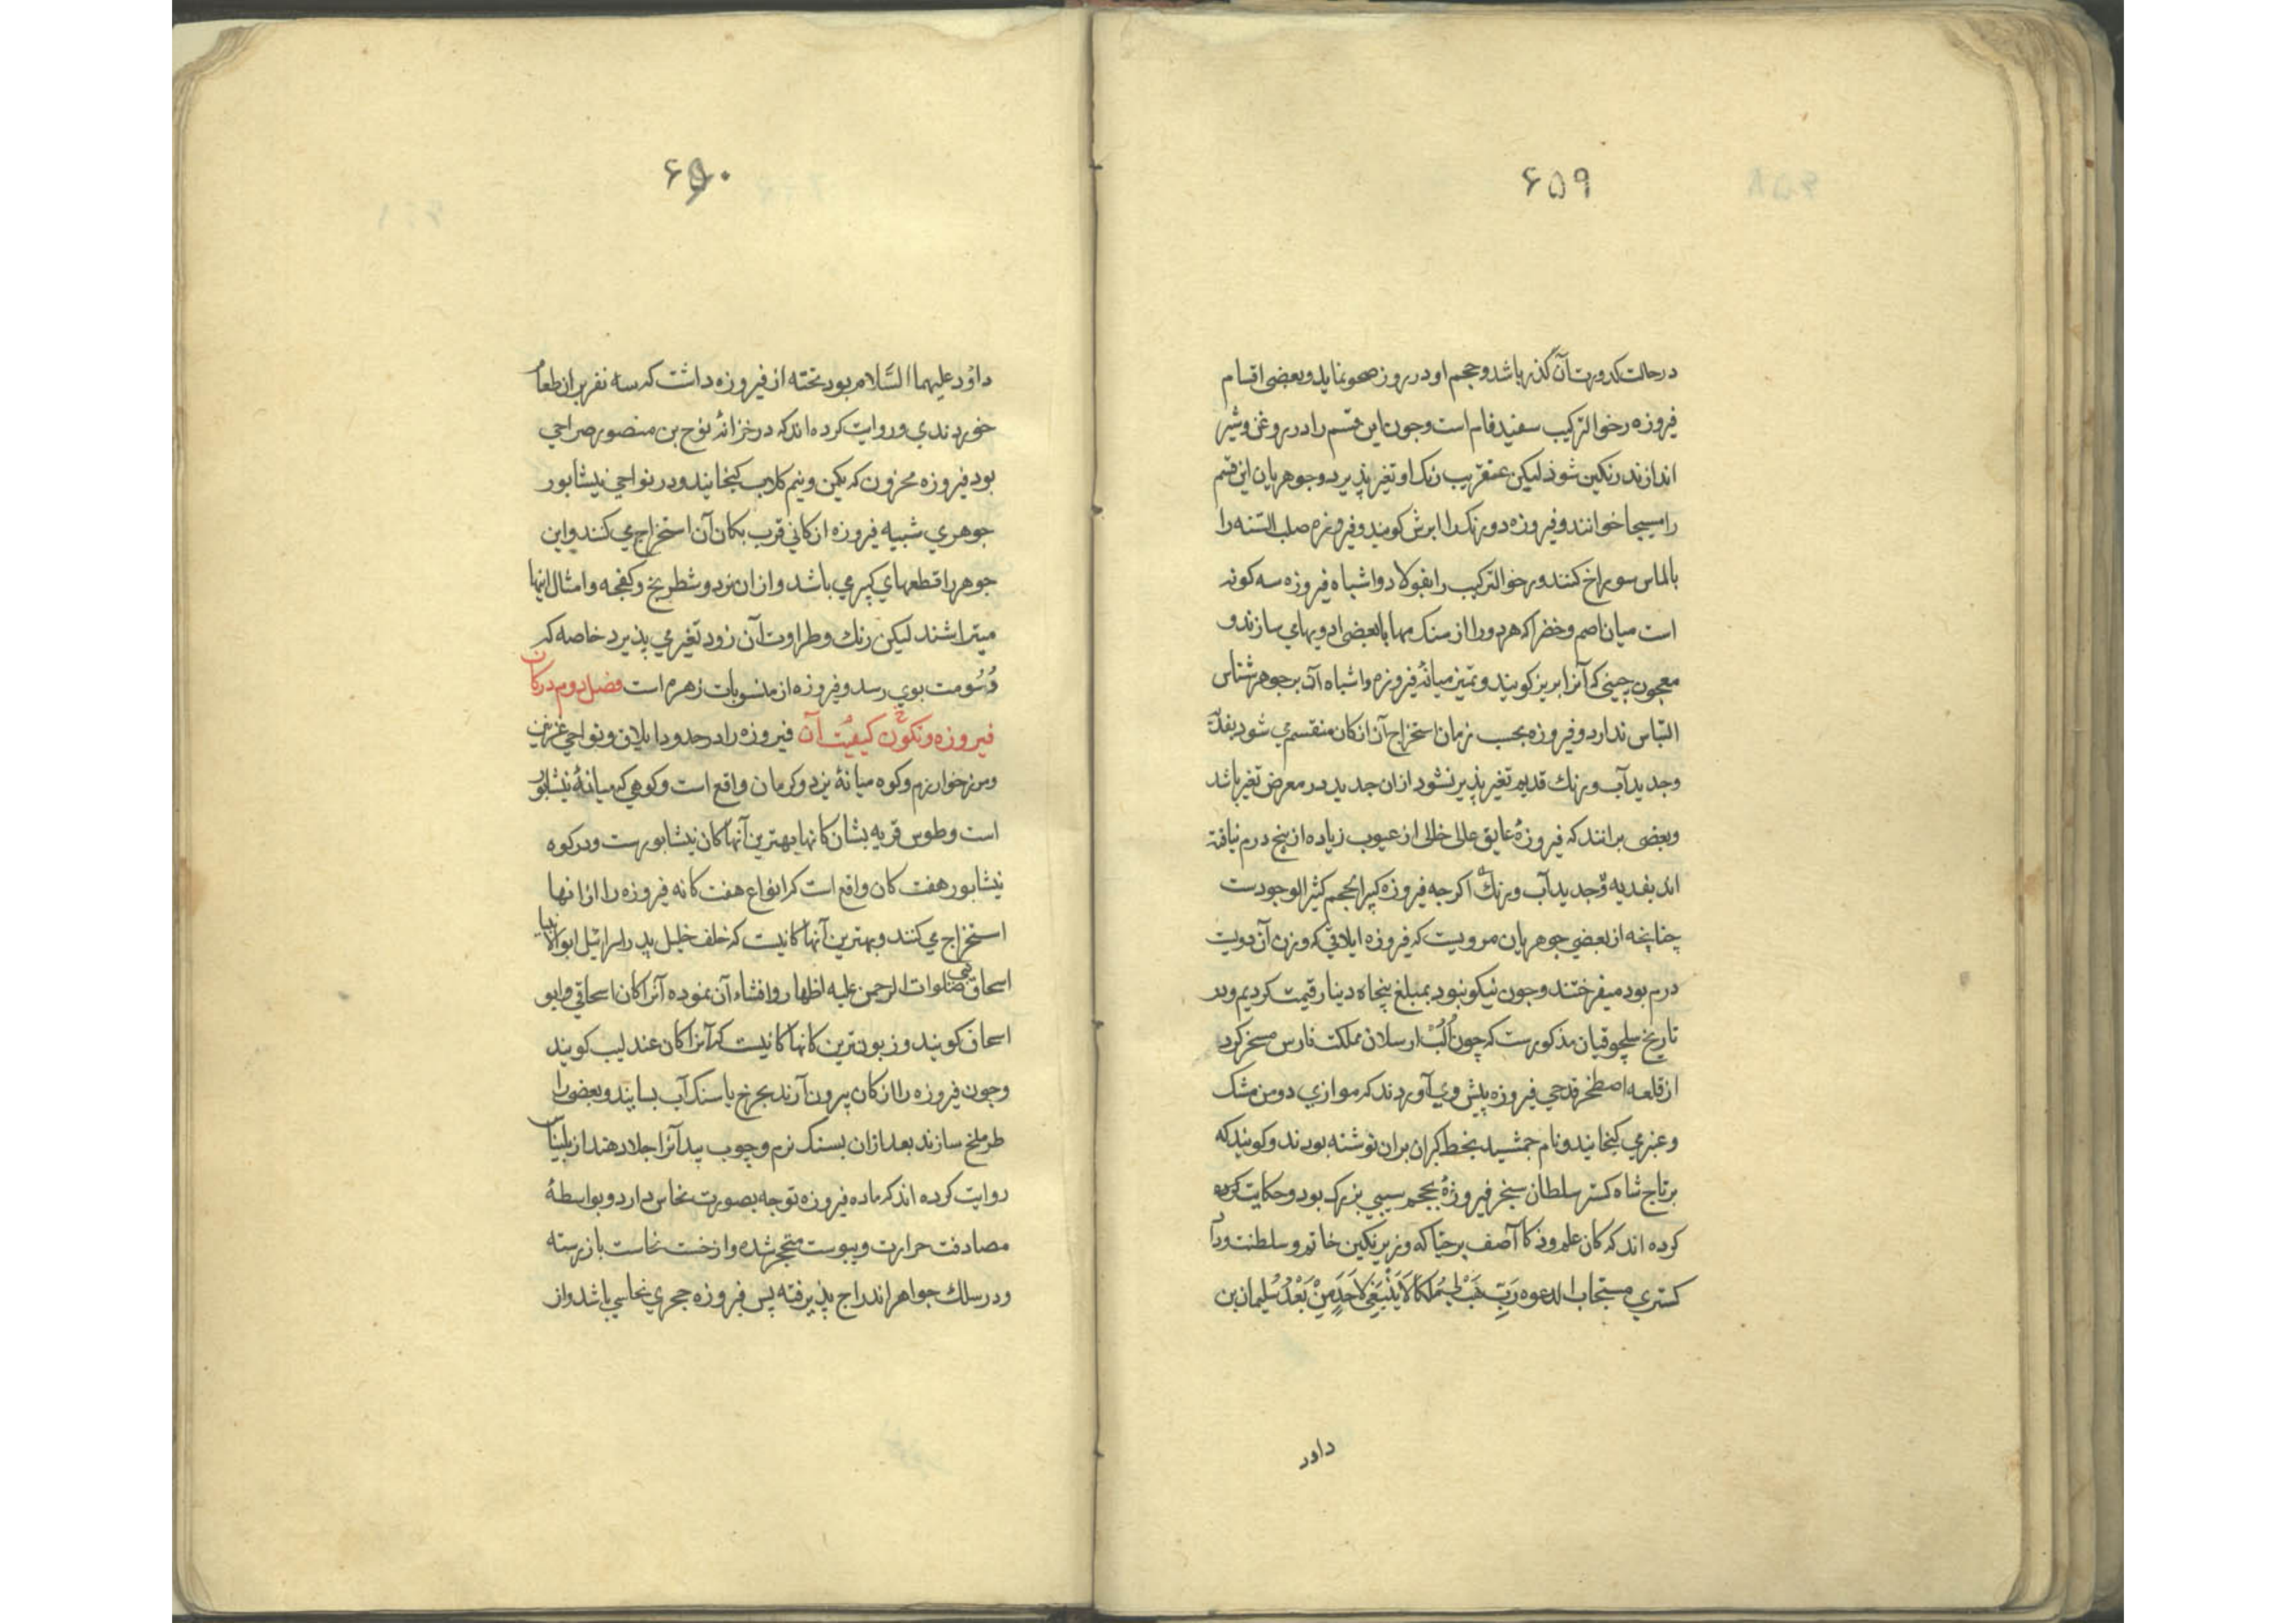 ۶۵۹
در حالت کدورت آن گذر باشد و حجم او در روز صحو نماید و بعضی اقسام
فیروزه رخوا لترکیب سفید فام است و جون این قسم را در روغن و شیر
اندازند رنکین شود لیکن عنقریب رنک او تغیر پذیرد و جوهریان این قسم
را مسیحا خوانند و فیروزه دورنک را ابرش کویند و فیروزه صلب التنه را
بالماس سوراخ کنند و رخوا لترکیب را بفولاد و اشباه فیروزه سه کونه
است میان اصم و خضرا که هر دو را از سنک مها با بعضی ادویها می سازند و
معجون چینی که آنرا بریز کویند و تمیز میانهٔ فیروزه و اشباه آن بر جوهر شناس
التباس ندارد و فیروزه بحسب زمان استخراج آن از کان منقسم می شود بقدیم
و جدید آب و رنک قدیم تغیر پذیر نشود ازان جدید در معرض تغیر باشد
و بعضی برانند که فیروزهٔ عایق علی خالی از عیوب زیاده از پنج درم نیافته
اند بقدیه و جدید آب و رنک اکرجه فیروزه کبیر الحجم کثیر الوجودست
چنانچه از بعضی جوهریان مرویست که فیروزه ایلاقی که وزن آن دویست
درم بود میفرختند و جون نیکو نبود بمبلغ پنجاه دینار قیمت کردیم و در
تاریخ سلجوقیان مذکورست که چون الب ارسلان مملکت فارس مسخر کرد
از قلعه اصطخر قدحی فیروزه پیش وی آوردند که موازی دو من مشک
و عنبر می کنجانیدو نام جمشید بخط کبران بران نوشته بودند و کویند که
بر تاج شاه کستر سلطان سنجر فیروزهٔ بحجم سیبی بزرک بود و حکایت کرده
کرده اند که کان علم و ذکا آصف برخیا که وزیر نکین خاتم و سلطنت و داد
کستری مستجاب الدعوه رَبِّ هَبْ لِي مُلْكًا لَا يَنْبَغِي لِأَحَدٍ مِنْ بَعْدِي سُلیمان بن
داود
۶۶۰
داوُد علیهما السَّلام بود تخته از فیروزه داشت که سه نفر بران طعام
خوردندی و روایت کرده اند که در خزانهٔ نوح بن منصور صراحی
بود فیروزه مخزون که یکن و نیم کلاب کنجانیدو در نواحی نیشابور
جوهری شبیه فیروزه از کانی قرب بکان آن استخراج می کنند و این
جوهر را قطعهای کبیر می باشد و ازان نرد و شطرنج و کفجه و امثال اینها
میتراشند لیکن رنك و طراوت آن زود تغیر می پذیرد خاصه که
دُسُومت بوی رسد و فیروزه از منسوبات زهره است فصل دوم در کان
فیروزه و تکوّن کیفیت آن فیروزه را در حدود ایلاق و نواحی غزنین
و مرز خوارزم و کوه میانهٔ یزد و کرمان واقع است و کوهی که میانهٔ نیشابور
است و طوس قریه بشان کانها بهترین آنها کان نیشابورست و در کوه
نیشابور هفت کان واقع است که انواع هفت کانه فیروزه را از انها
استخراج می کنند و بهترین آنها کانیست که خلف خلیل پدر اسرائیل ابوالانبیا
اسحاق نبی صلوات الرحمن علیه اظهار و افشاء آن نموده آنرا کان اسحاقی و ابو
اسحاق کویند و زبون ترین کانها کانیست که آنرا کان عندلیب کویند
و جون فیروزه را از کان بیرون آرند بجرخ یا سنک آب بسایند و بعضی را
طرملخ سازند بعد ازان بسنک نرم و چوب بید آنرا جلا دهند از بلیناس
روایت کرده اند که ماده فیروزه توجه بصورت نحاس دارد و بواسطهٔ
مصادفت حرارت و یبوست متحجر شده و از خست نحاست باز رسته
و در سلك جواهر اندراج پذیرفته پس فیروزه حجری نحاسی باشد و از